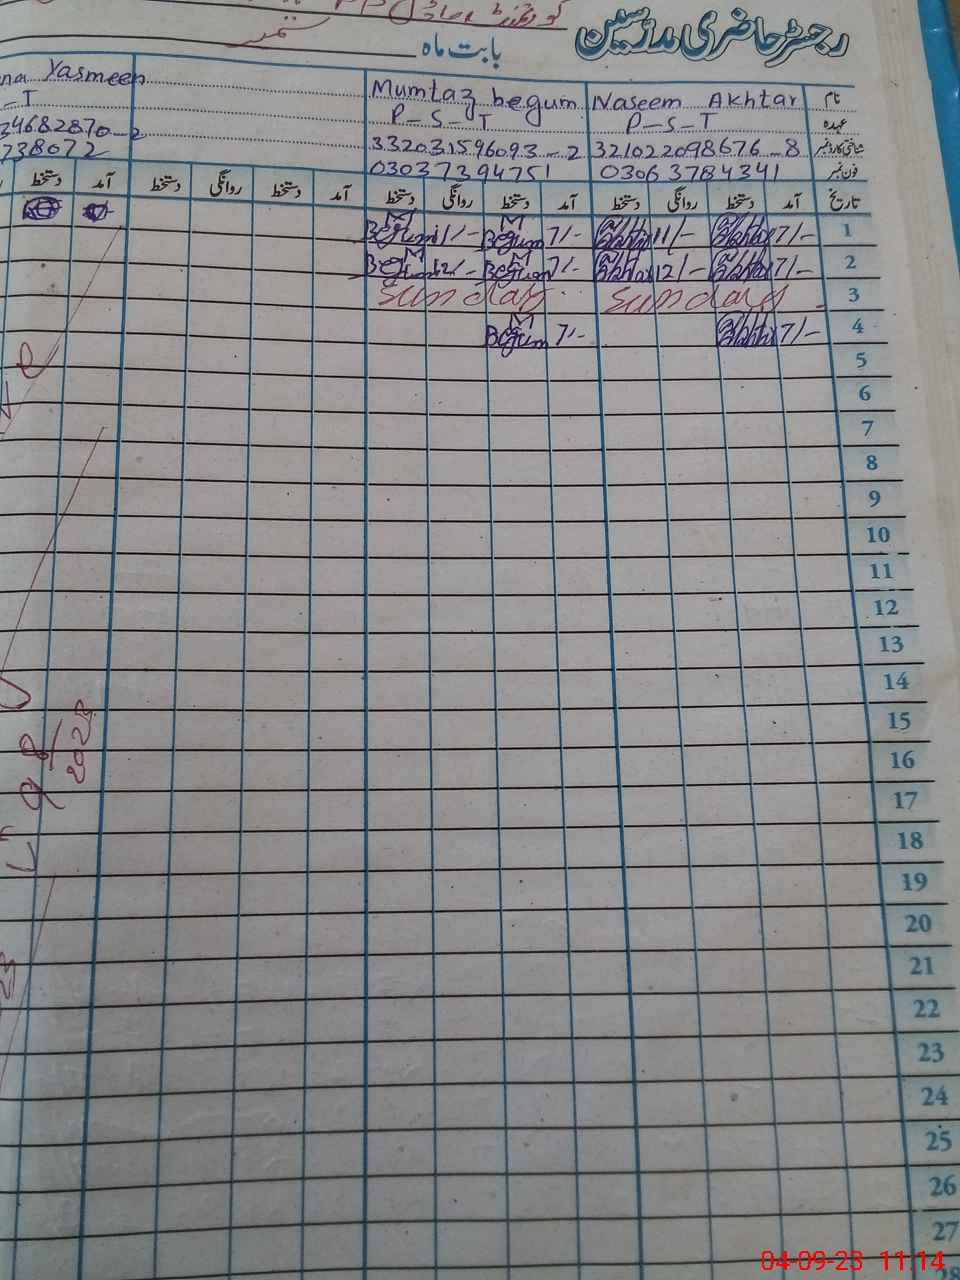 رجسٹر حاضری مدرسین
بابت ماہ ستمبر
نام Naseem Akhtar Mumtaz begum na Yasmeen
عہدہ P-S-T P-S-T -T
شناختی کارڈ نمبر 321022098676-8 332031596093-2 34682870-2
فون نمبر 03063784341 03037394751 738072
تاریخ آمد دستخط روانگی دستخط آمد دستخط روانگی دستخط آمد دستخط روانگی دستخط آمد دستخط
1 7/- Akhtar 11/- Akhtar 7/- M Begum 11/- M Begum
2 7/- Akhtar 12/- Akhtar 7/- M Begum 12/- M Begum
3 Sunday Sunday
4 7/- Akhtar 7/- M Begum
5
6
7
8
9
10
11
12
13
14
15
16
17
18
19
20
21
22
23
24
25
26
27
28
2023
04-09-23 11:14